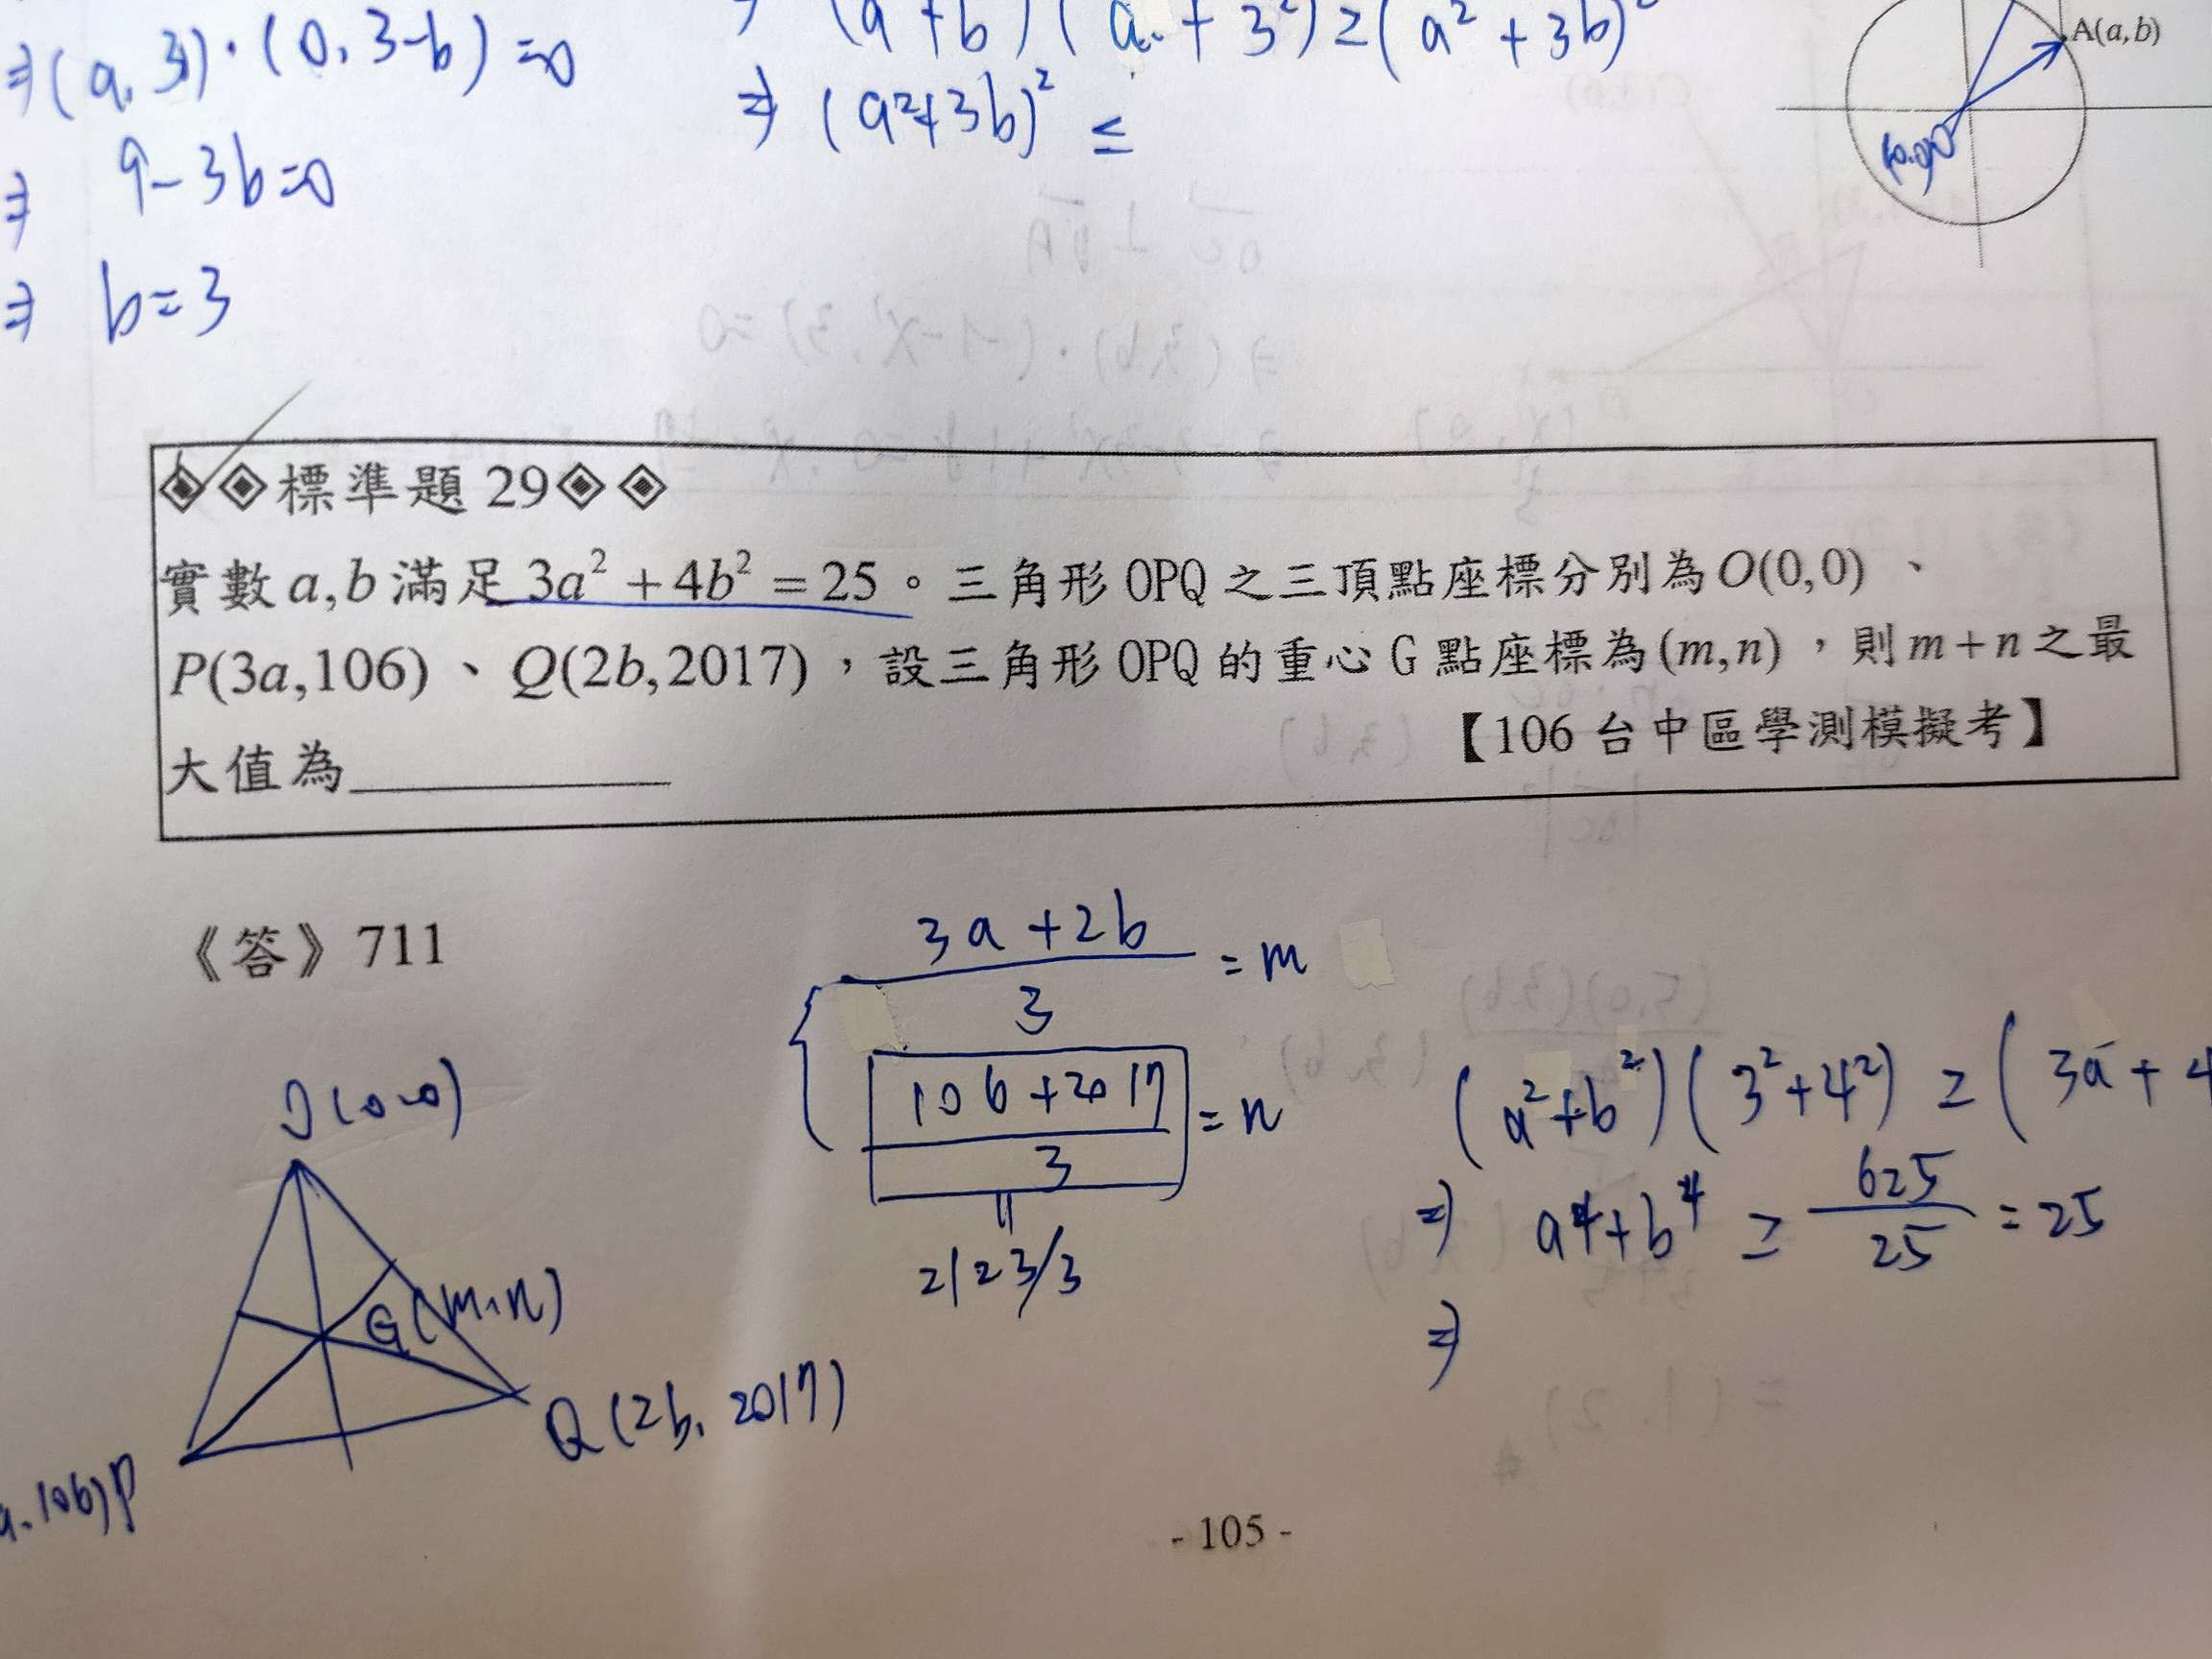 ⇒(a, 3)·(0, 3-b)=0
⇒ 9-3b=0
⇒ b=3
⇒ (a²+3b)² ≤
A(a,b)
(0,0)
標準題 29
實數a,b滿足 3a² + 4b² = 25。三角形 OPQ 之三頂點座標分別為O(0,0)、
P(3a,106)、Q(2b,2017),設三角形 OPQ 的重心 G 點座標為(m,n),則m+n之最
大值為
【106 台中區學測模擬考】
《答》711
3a+2b/3 = m
106+2017/3 = n
2123/3
(a²+b²)(3²+4²) ≥ (3a+4
⇒ a⁴+b⁴ ≥ 625/25 = 25
⇒
O(0,0)
G(m,n)
Q(2b, 2017)
106)P
- 105 -